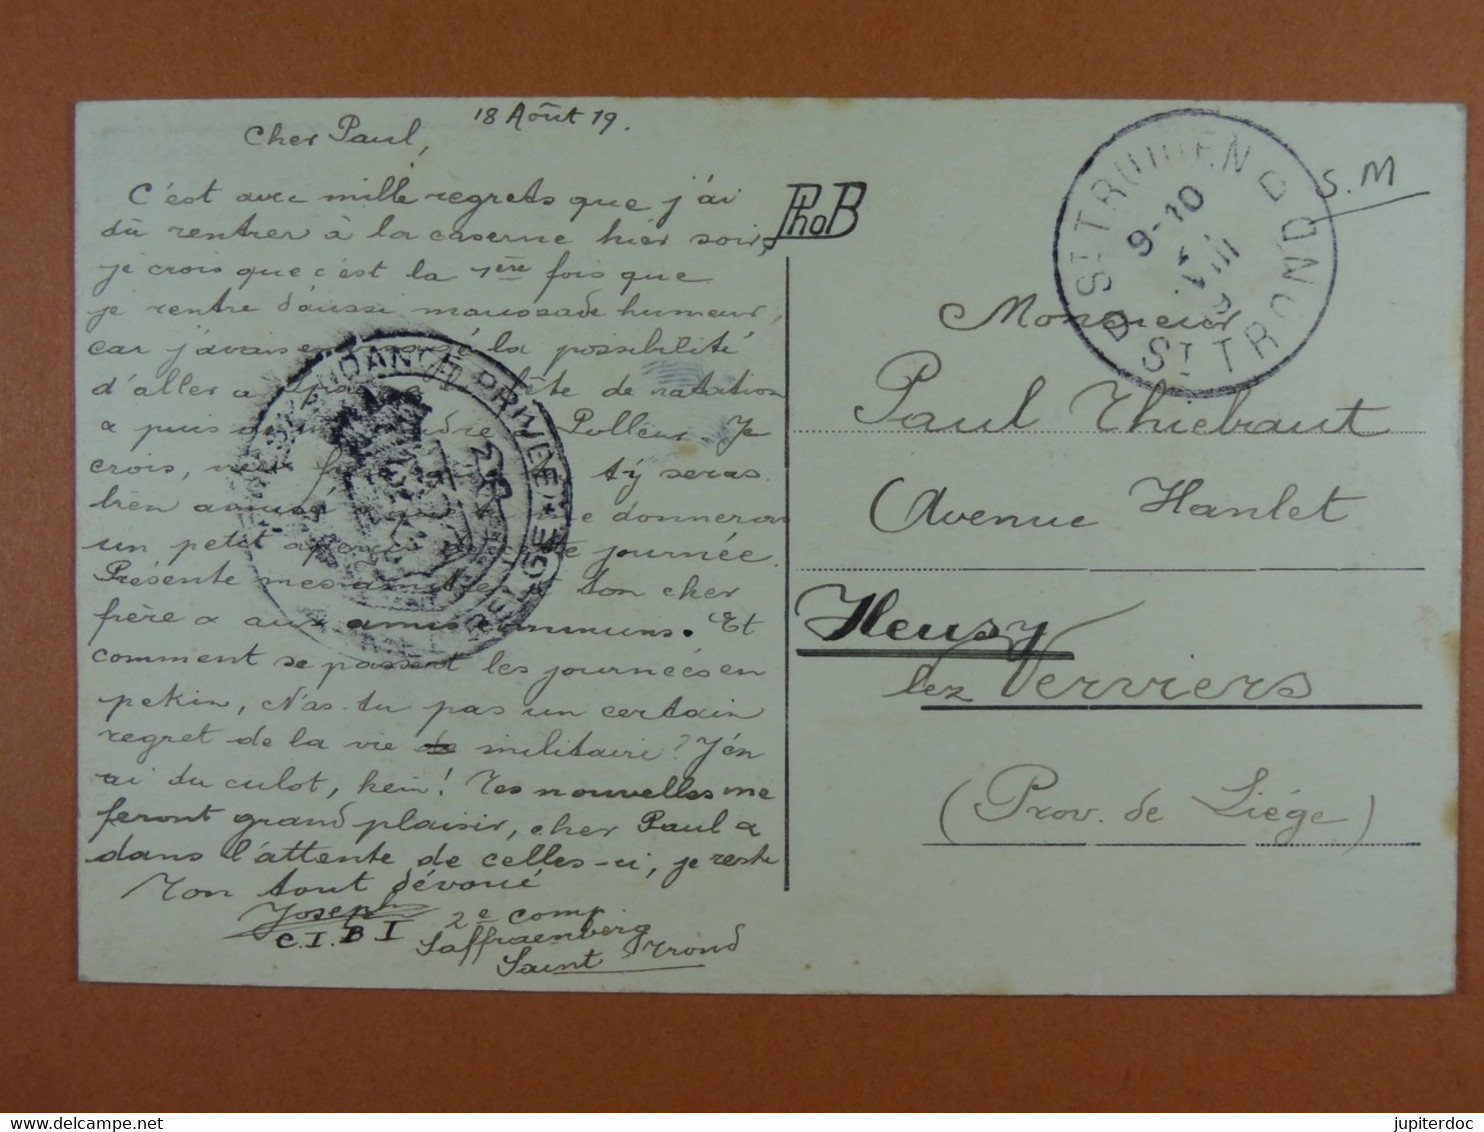 18 Août 19.
Cher Paul,
C'est avec mille regrets que j'ai
dû rentrer à la caserne hier soir,
je crois que c'est la 1ère fois que
je rentre d'aussi maussade humeur,
car j'avais la possibilité
d'aller fête de natation
& puis Polleur Je
crois, t'y seras
bien donneront
un petit journée.
Présente mes ton cher
frère & aux amis communs. Et
comment se passent les journées en
pekin, N'as-tu pas un certain
regret de la vie militaire? J'en
ai du culot, hein! Tes nouvelles me
feront grand plaisir, cher Paul &
dans l'attente de celles-ci, je reste
Ton tout dévoué
Joseph
C.I.B I 2e Comp
Saffraenberg
Saint Trond
CORRESPONDANCE PRIVÉE * BELGE
PhoB
ST TRUIDEN D
9-10
VIII
B ST TROND
S.M
Monsieur
Paul Thiebaut
Avenue Hanlet
Heusy
lez Verviers
(Prov. de Liége)
jupiterdoc